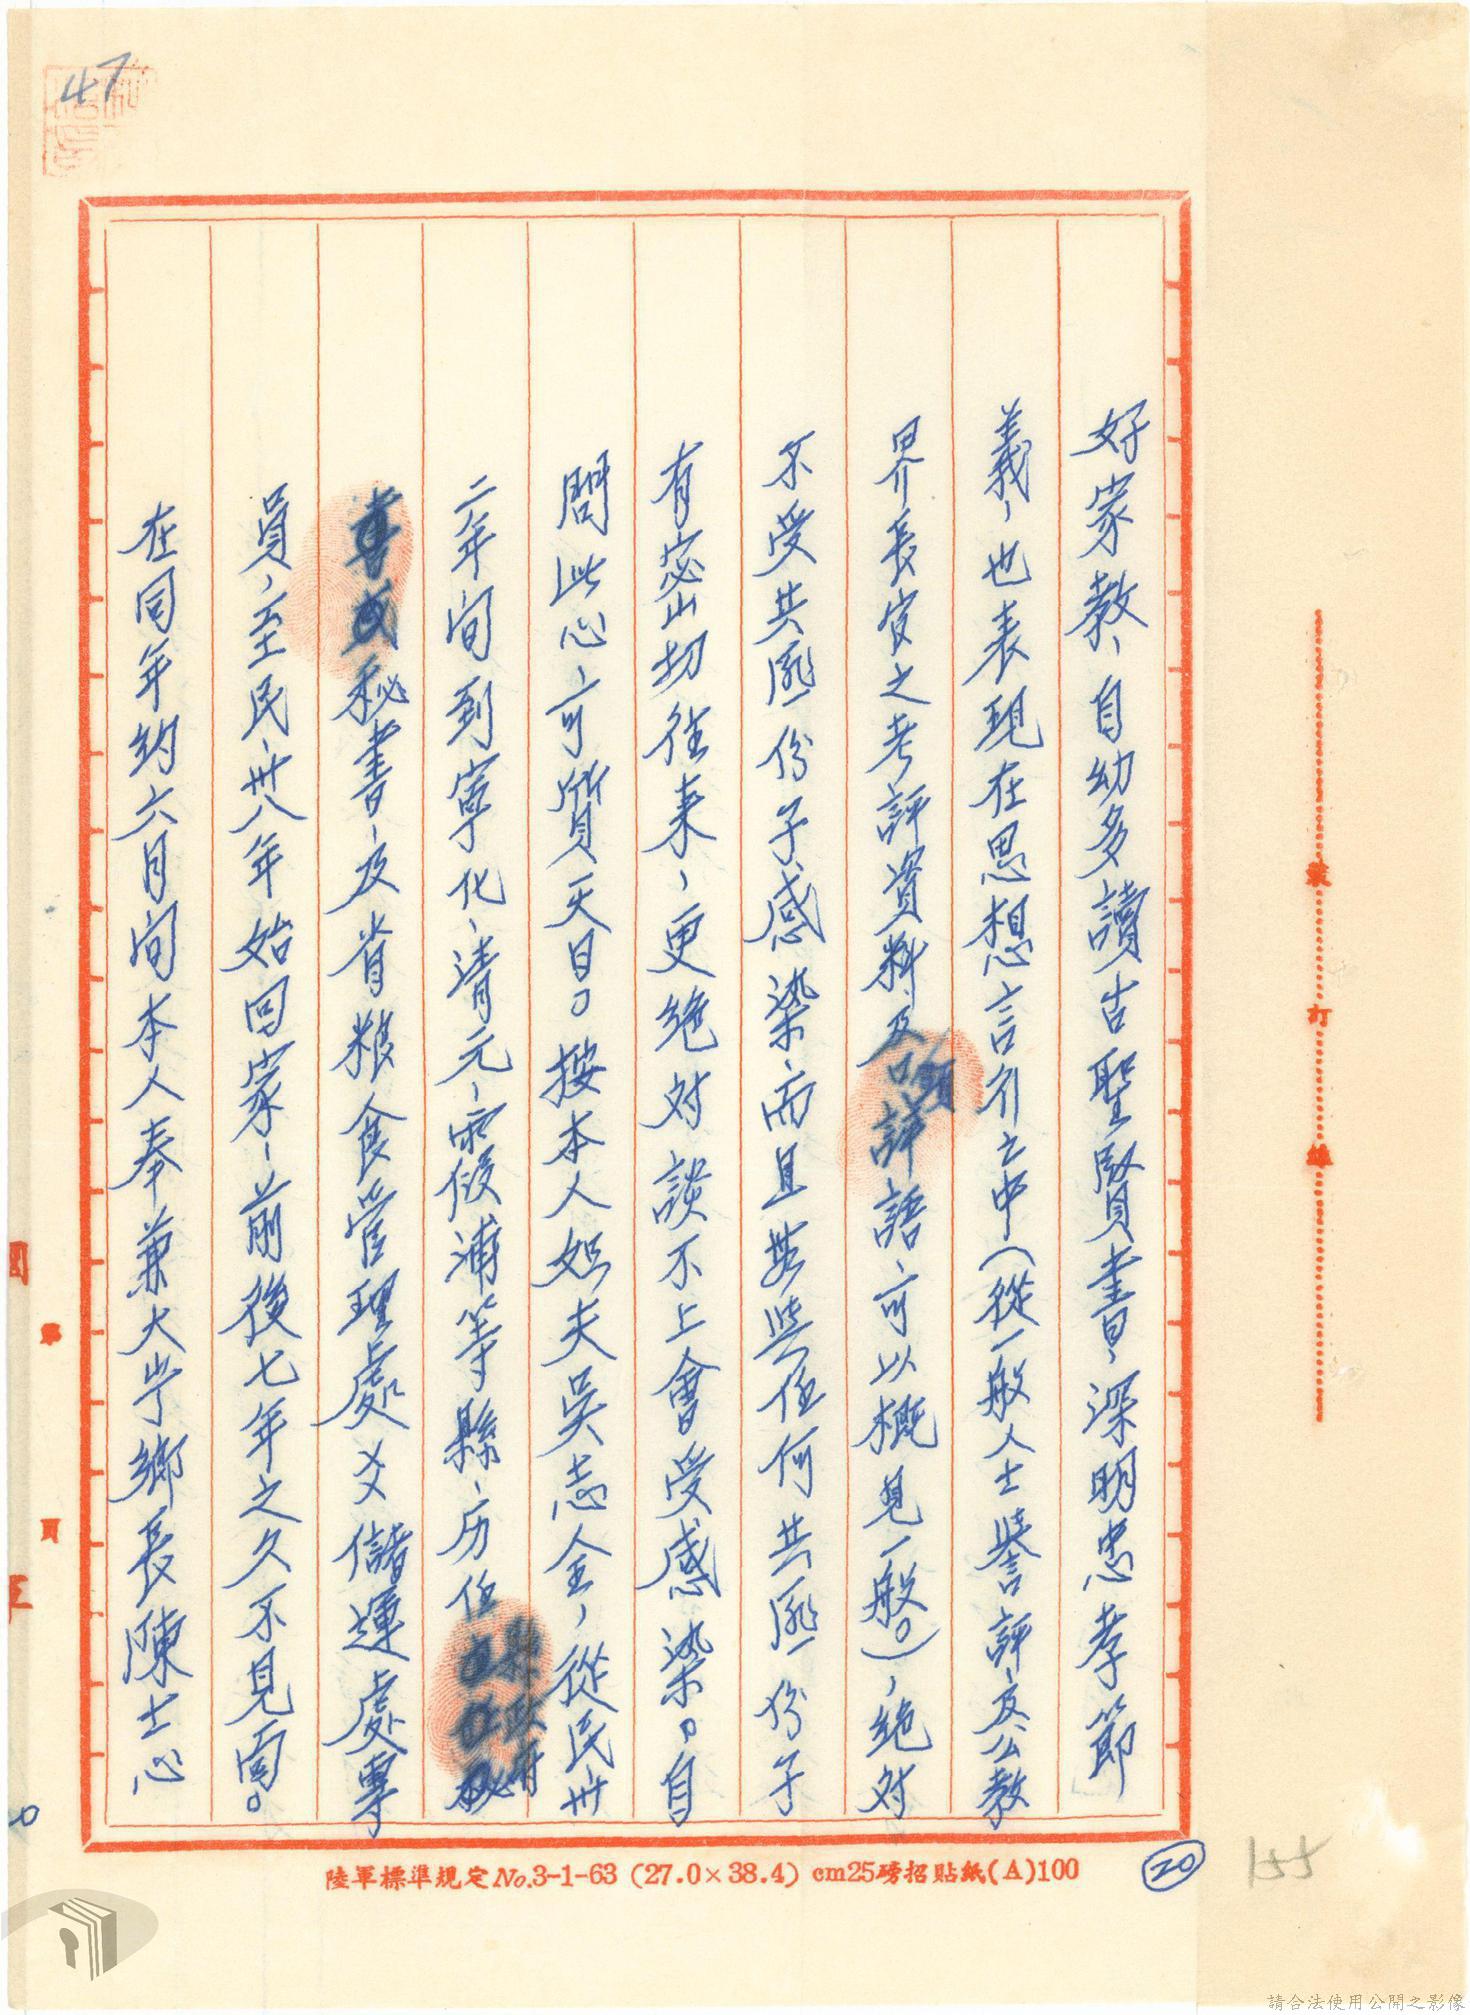 47
好家教、自幼多讀古聖賢書、深明忠孝節
義，也表現在思想言行之中（從一般人士譽評、及公教
界長官之考評資料、及口頭評語、可以概見一般。），絕对
不受共匪份子感染、而且無與任何共匪份子
有密切往来，更絕对談不上會受感染。自
問此心、可質天日。按本人姐夫吳志全，從民卅
二年间到寧化、清元、霞浦等縣、历任縣政府
秘書、及省粮食管理處又儲運處專
員，至民、卅八年始回家、前後七年之久不見面。
在同年約六月间本人奉兼大宁鄉長陳士心
陸軍標準規定No.3-1-63 (27.0×38.4) cm25磅招貼紙(A)100
20
155
裝
訂
線
第
頁
請合法使用公開之影像